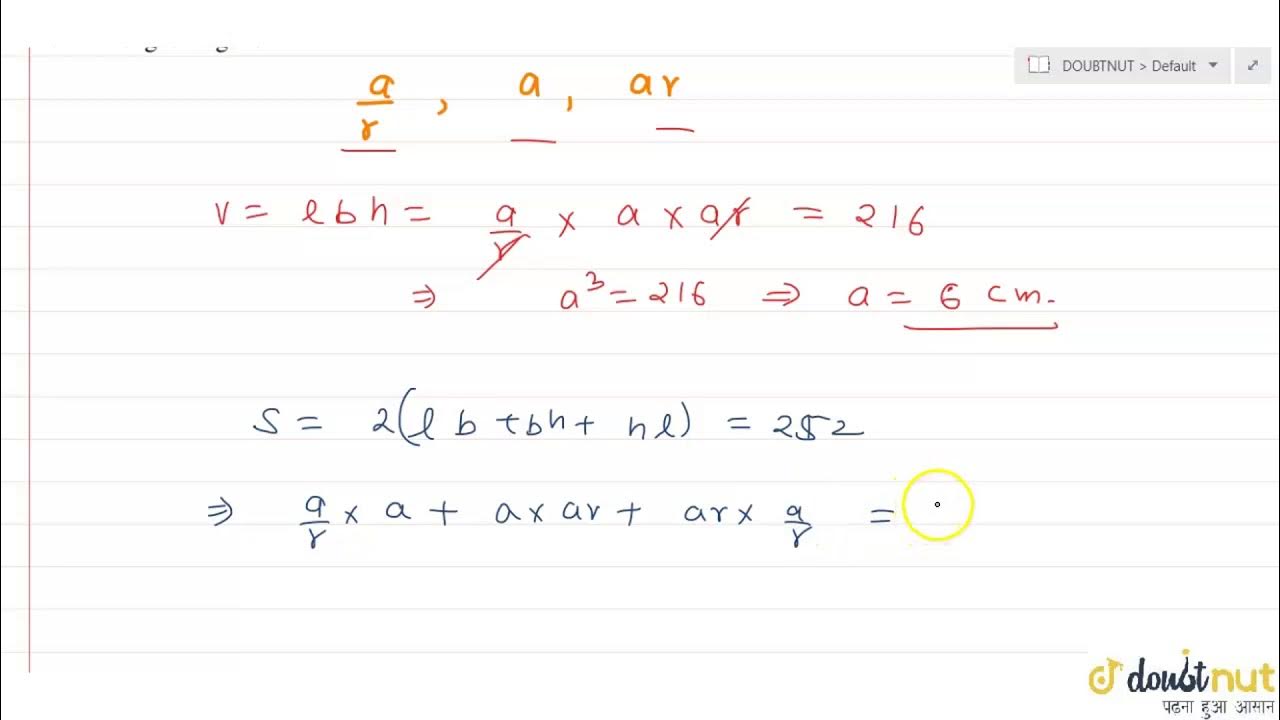 DOUBTNUT > Default
a/r , a , ar
V = l b h = a/r × a × ar = 216
⇒ a³ = 216 ⇒ a = 6 cm.
S = 2(l b + bh + hl) = 252
⇒ a/r × a + a × ar + ar × a/r =
doubtnut
पढ़ना हुआ आसान